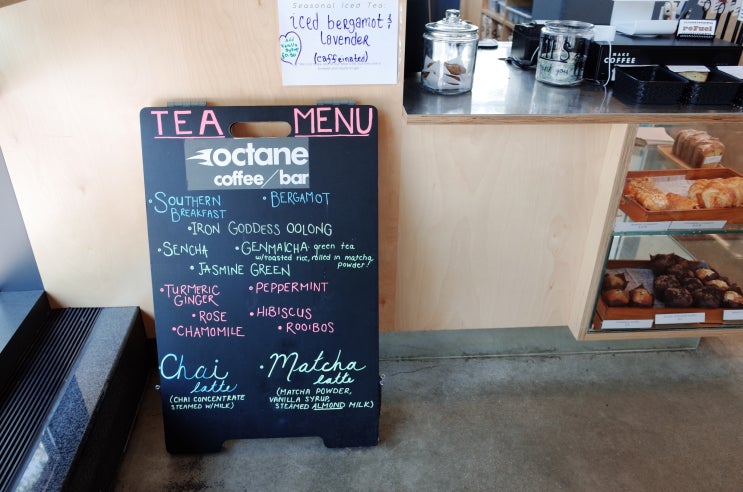 Seasonal Iced Tea:
iced bergamot &
lavender
(caffeinated)
TEA MENU
octane
coffee/bar
• SOUTHERN BREAKFAST
• BERGAMOT
• IRON GODDESS OOLONG
• SENCHA
• GENMAICHA: green tea
w/roasted rice, rolled in matcha
powder!
• JASMINE GREEN
• TURMERIC GINGER
• PEPPERMINT
• ROSE
• HIBISCUS
• CHAMOMILE
• ROOIBOS
• Chai
latte
(CHAI CONCENTRATE
STEAMED W/MILK)
• Matcha
latte
(MATCHA POWDER,
VANILLA SYRUP,
STEAMED ALMOND MILK)
thank you
MAKE
COFFEE
reFuel